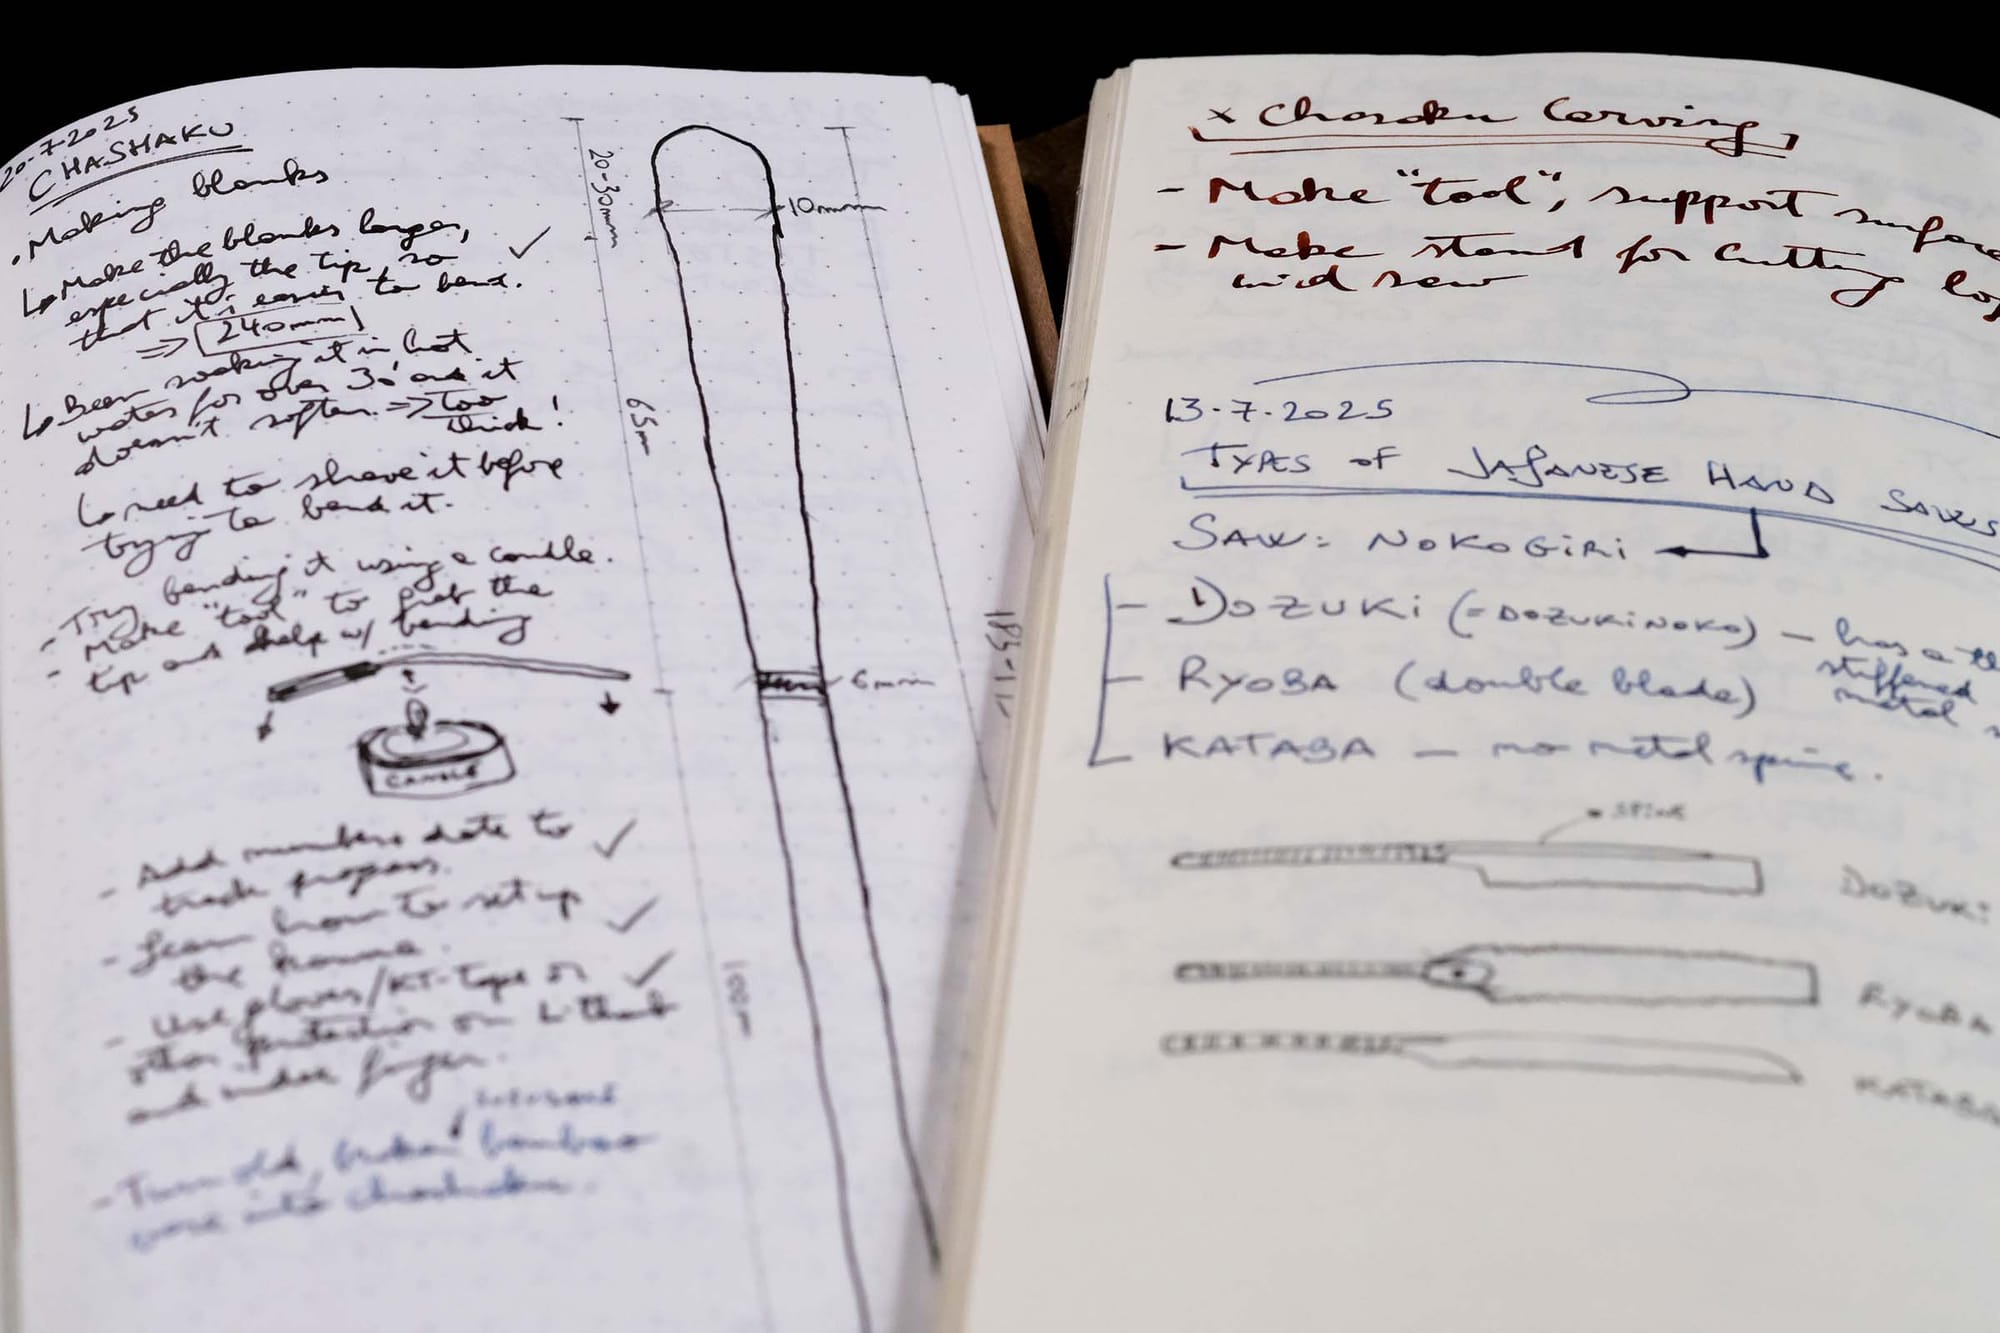 20-7-2025
CHASHAKU
• Making blanks
↳ Make the blanks longer, ✓
especially the tip, so
that it's easier to bend.
=> 240mm
↳ Been soaking it in hot
water for over 30' and it
doesn't soften => too
thick!
↳ need to shave it before
trying to bend it.
- Try bending it using a candle.
- Make "tool" to the
tip and help w/ bending
CANDLE
- Add numbers date to ✓
track progress.
- Learn how to set up ✓
the kanna.
- Use gloves/KT-Tape or ✓
other protection on L thumb
and index finger.
- Turn old, broken bamboo
into chashaku.
20-30mm
10mm
65m
6mm
100m
x Chasaku Carving
- Make "tool", support
- Make stand for cutting
mid saw
13-7-2025
TYPES OF JAPANESE HAND SAWS
SAW: NOKOGIRI
- DOZUKI (= DOZUKINOKO) - has a
stiffened
metal
- RYOBA (double blade)
KATABA - no metal spine.
SPINE
DOZUKI
RYOBA
KATABA